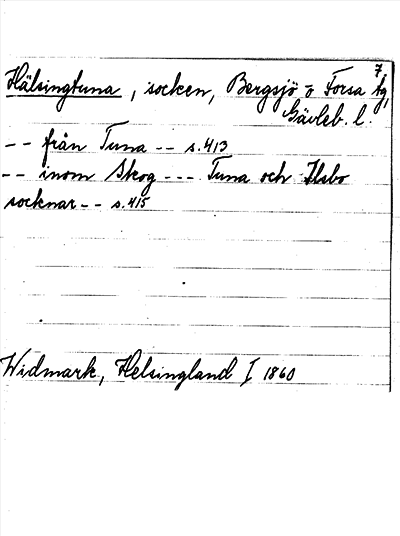 7
Hälsingtuna, socken, Bergsjö o Forsa tg,
Gävleb. l.
-- från Tuna -- s. 413
-- inom Skog --- Tuna och Ilsbo
socknar -- s. 415
Widmark, Helsingland I 1860